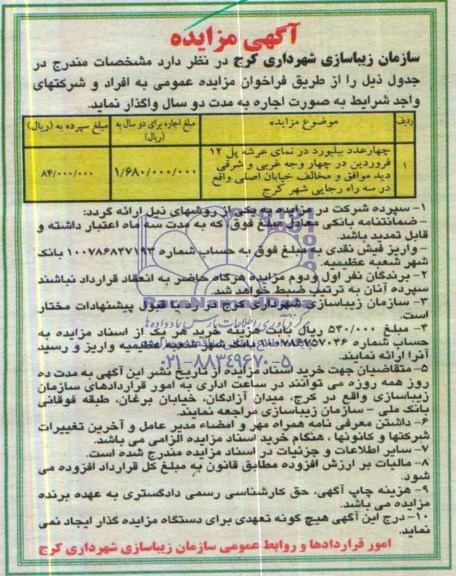 آگهی مزایده
سازمان زیباسازی شهرداری کرج در نظر دارد مشخصات مندرج در
جدول ذیل را از طریق فراخوان مزایده عمومی به افراد و شرکتهای
واجد شرایط به صورت اجاره به مدت دو سال واگذار نماید.
ردیف موضوع مزایده مبلغ اجاره برای دو سال به (ریال) مبلغ سپرده به (ریال)
۱ چهارعدد بیلبورد در نمای عرشه پل ۱۲
فروردین در چهار وجه غربی و شرقی
دید موافق و مخالف خیابان اصلی واقع
در سه راه رجایی شهر کرج
۱/۶۸۰/۰۰۰/۰۰۰ ۸۴/۰۰۰/۰۰۰
۱- سپرده شرکت در مزایده به یکی از روشهای ذیل ارائه گردد:
- ضمانتنامه بانکی معادل مبلغ فوق که به مدت سه ماه اعتبار داشته و
قابل تمدید باشد.
- واریز فیش نقدی به مبلغ فوق به حساب شماره ۱۰۰۷۸۶۸۳۷۱۹۳ بانک
شهر شعبه عظیمیه
۲- برندگان نفر اول ودوم مزایده هرگاه حاضر به انعقاد قرارداد نباشند
سپرده آنان به ترتیب ضبط خواهد شد.
۳- سازمان زیباسازی شهرداری کرج در رد یا قبول پیشنهادات مختار
است.
۴- مبلغ ۵۴۰/۰۰۰ ریال بابت خرید هر یک از اسناد مزایده به
حساب شماره بانک شهر شعبه عظیمیه واریز و رسید
آنرا ارائه نمایند.
۵- متقاضیان جهت خرید اسناد مزایده از تاریخ نشر این آگهی به مدت ده
روز همه روزه می توانند در ساعت اداری به امور قراردادهای سازمان
زیباسازی واقع در کرج، میدان آزادگان، خیابان برغان، طبقه فوقانی
بانک ملی - سازمان زیباسازی مراجعه نمایند.
۶- داشتن معرفی نامه همراه مهر و امضاء مدیر عامل و آخرین تغییرات
شرکتها و کانونها ، هنگام خرید اسناد مزایده الزامی می باشد.
۷- سایر اطلاعات و جزئیات در اسناد مزایده مندرج شده است.
۸- مالیات بر ارزش افزوده مطابق قانون به مبلغ کل قرارداد افزوده می
شود.
۹- هزینه چاپ آگهی، حق کارشناسی رسمی دادگستری به عهده برنده
مزایده می باشد.
۱۰- درج این آگهی هیچ گونه تعهدی برای دستگاه مزایده گذار ایجاد نمی
نماید.
امور قراردادها و روابط عمومی سازمان زیباسازی شهرداری کرج
۰۲۱-۸۸۳۴۹۶۷۰-۵